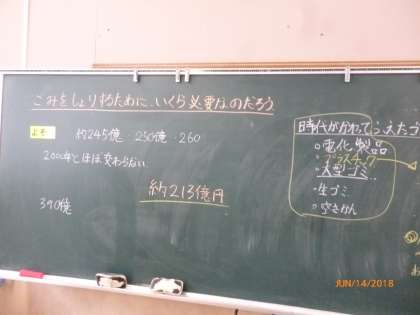 ごみをしょりするために、いくら必要なのだろう
よそう
約245億・250億・260
2000年とほぼ変わらない
約213億円
390億
時代がかわってふえたゴ
電化製品
プラスチック
大型ゴミ
生ゴミ
空きかん
JUN/14/2018